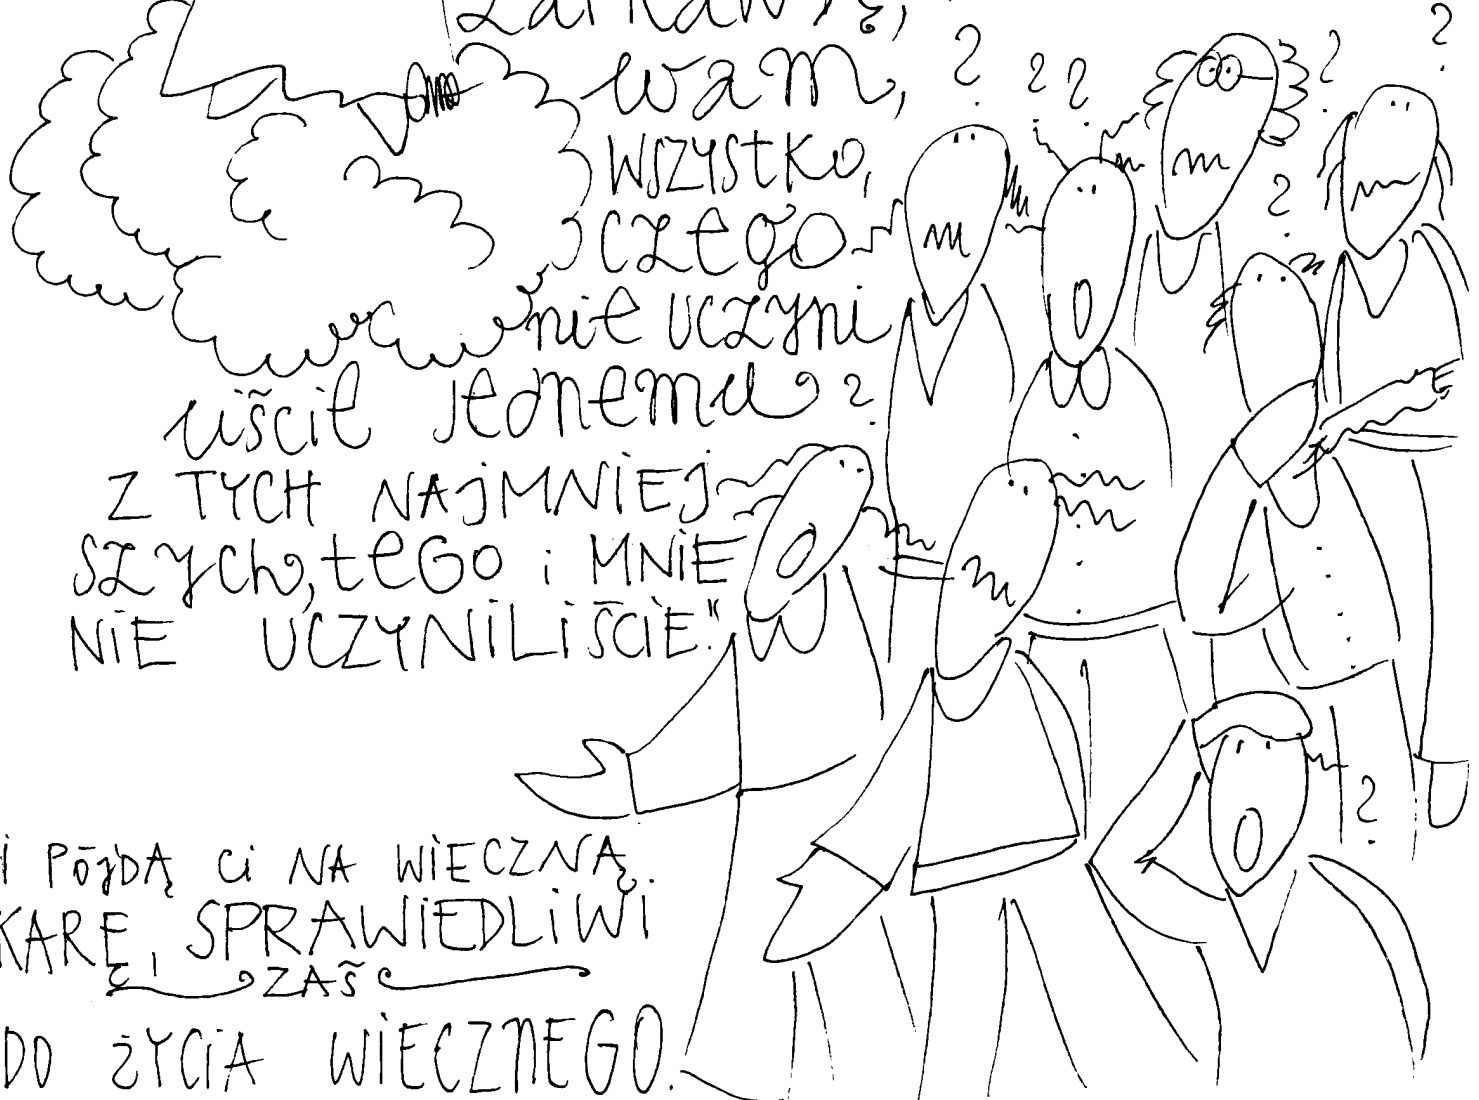 wam,
WSZYStKo,
czego
nie uczyni
liście jednemu
Z TYCH NAJMNIEJ
szych, teGo i MNIE
NIE UCZYNILIŚCIE."
I PÓJDĄ Ci NA WIECZNĄ
KARĘ, SPRAWIEDLIWI
ZAŚ
DO ŻYCIA WIECZNEGO.
? ? ? ? ? ? ? ?